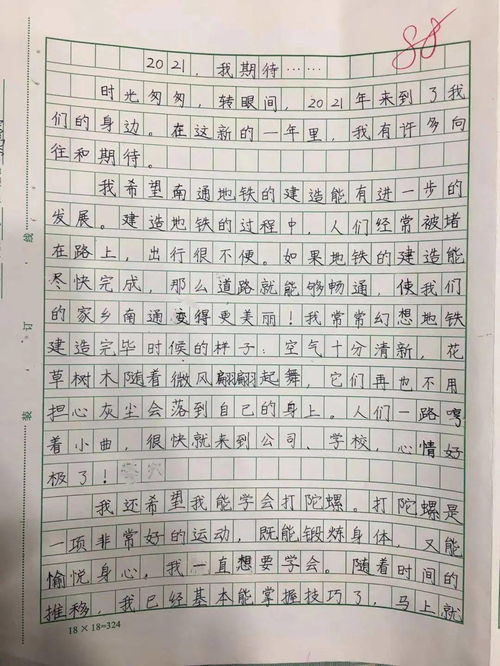 88
2021，我期待……
时光匆匆，转眼间，2021年来到了我
们的身边。在这新的一年里，我有许多向
往和期待。
我希望南通地铁的建造能有进一步的
发展。建造地铁的过程中，人们经常被堵
在路上，出行很不便。如果地铁的建造能
尽快完成，那么道路就能够畅通，使我们
的家乡南通变得更美丽！我常常幻想地铁
建造完毕时候的样子：空气十分清新，花
草树木随着微风翩翩起舞，它们再也不用
担心灰尘会落到自己的身上。人们一路哼
着小曲，很快就来到公司、学校，心情好
极了！
我还希望我能学会打陀螺。打陀螺是
一项非常好的运动，既能锻炼身体，又能
愉悦身心，我一直想要学会。随着时间的
推移，我已经基本能掌握技巧了，马上就
18×18=324
线
订
装